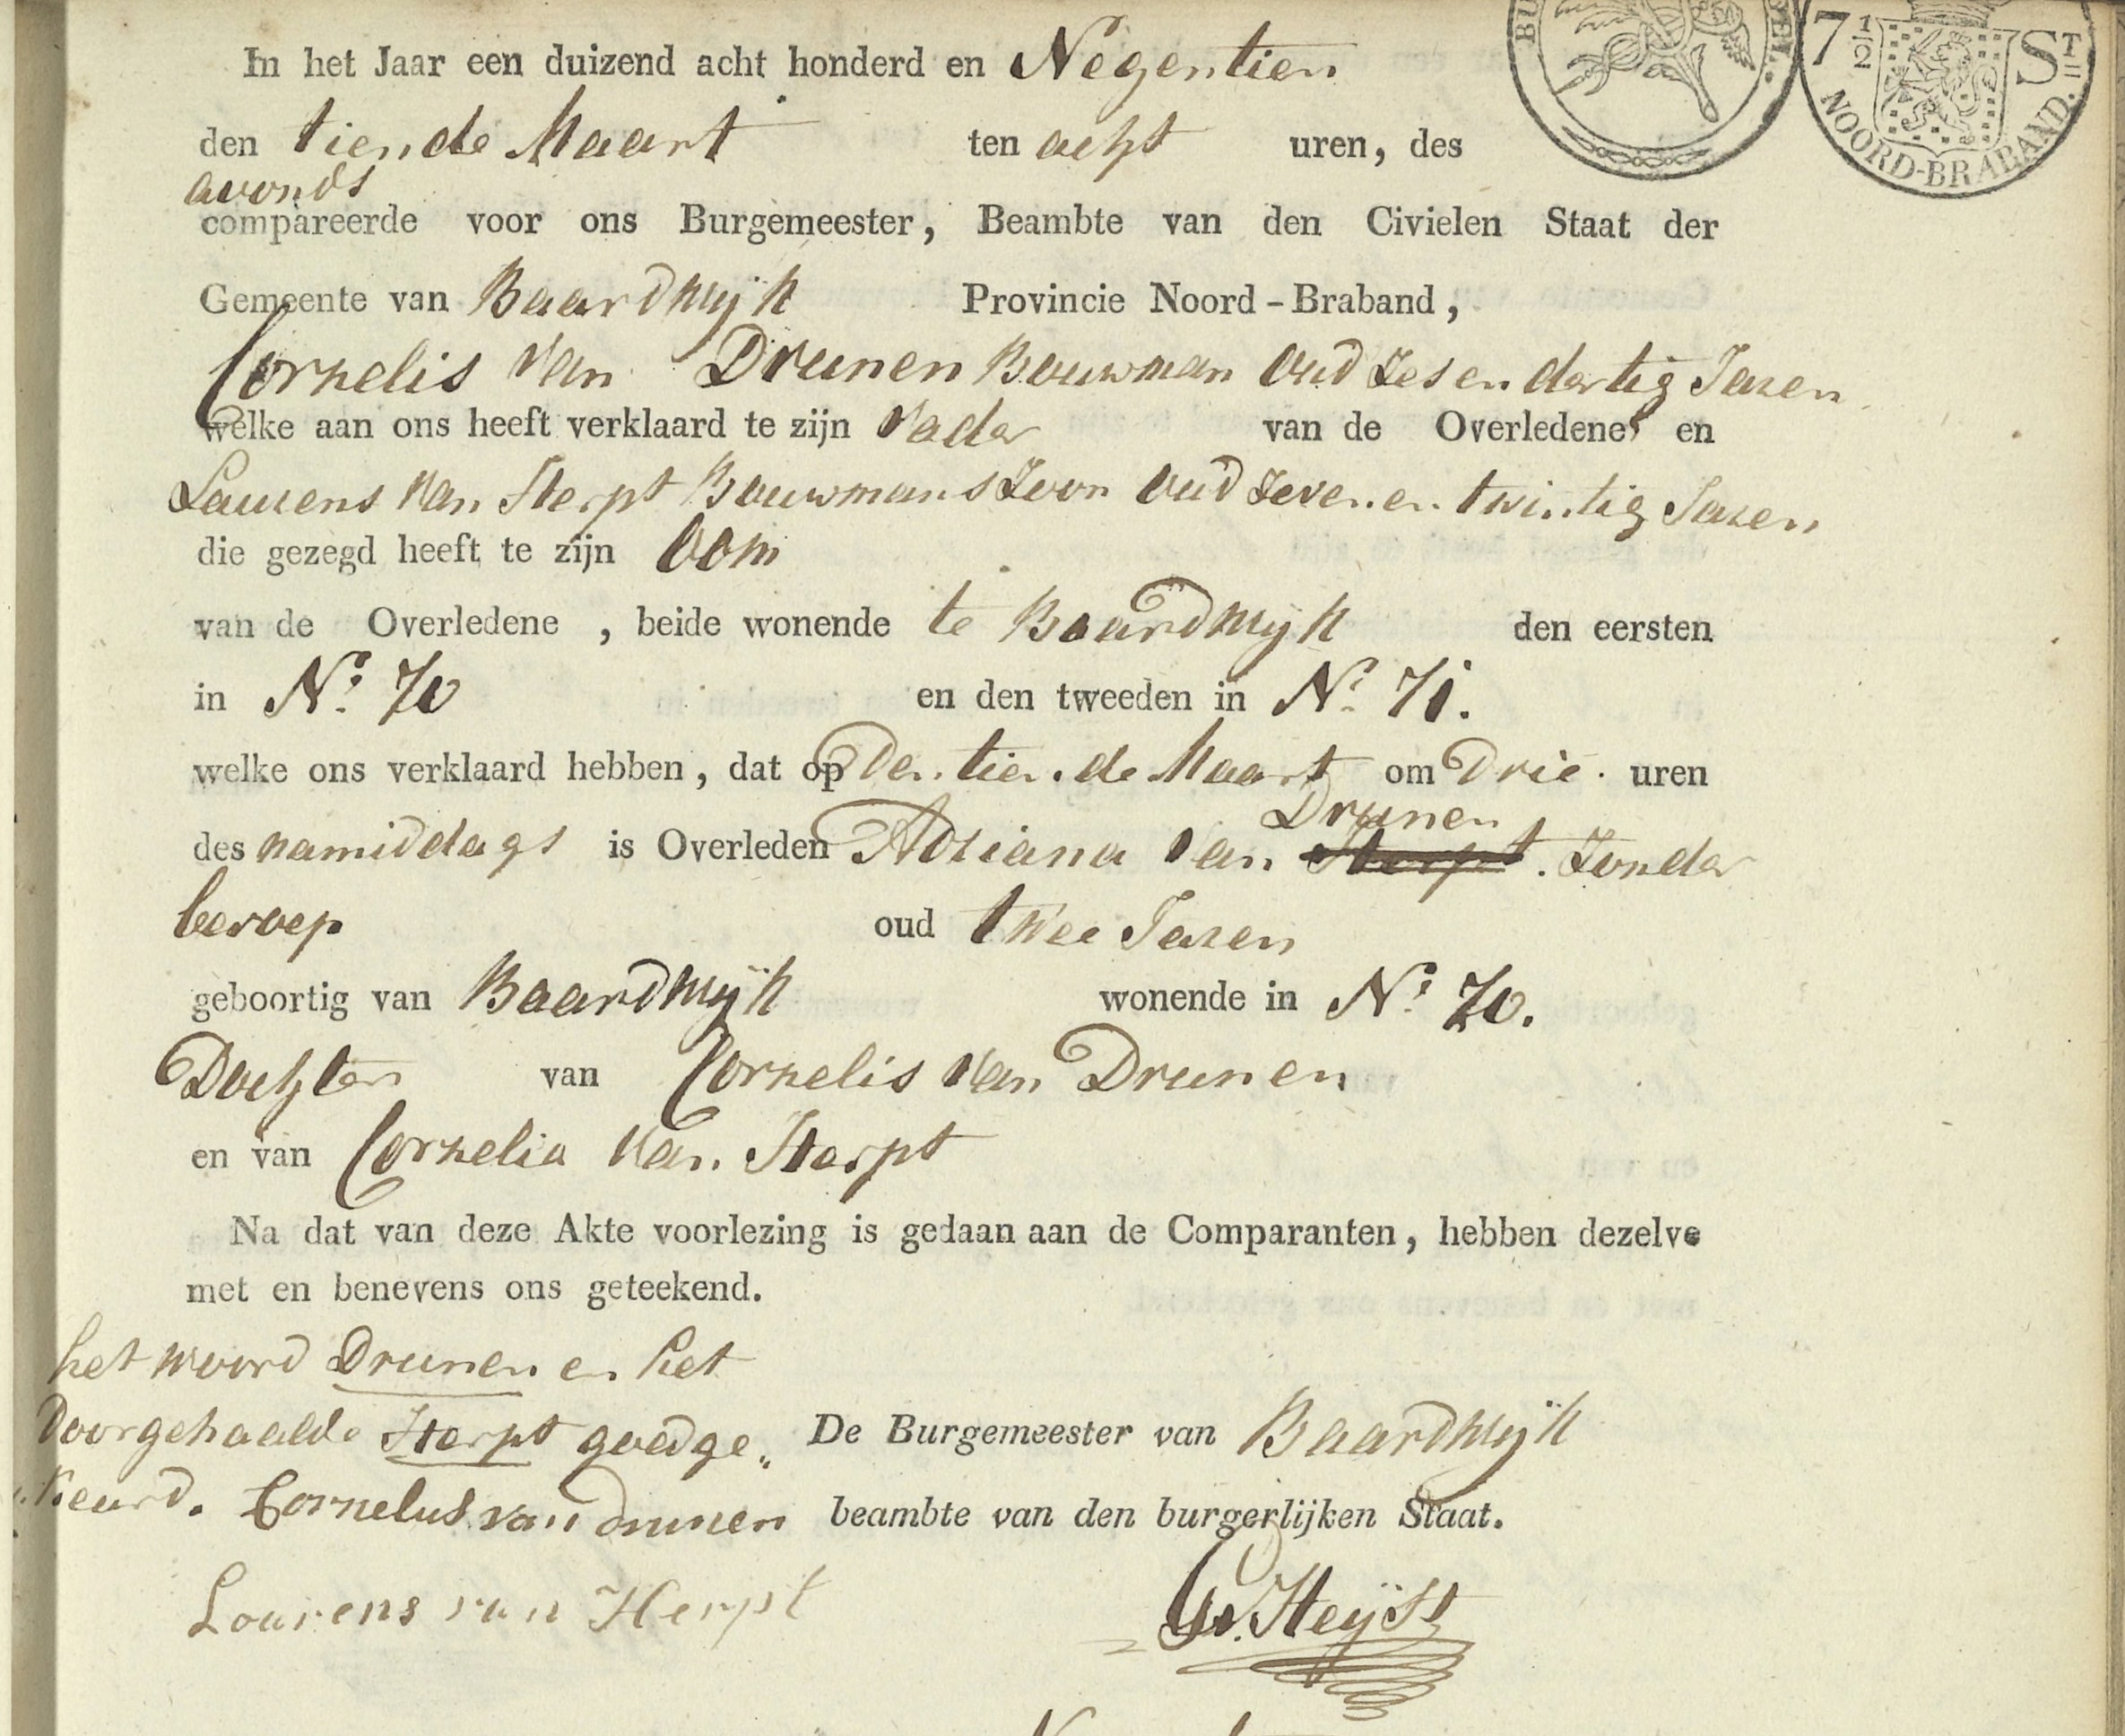 In het Jaar een duizend acht honderd en Negentien
den tiende Maart ten acht uren, des
avonds
compareerde voor ons Burgemeester, Beambte van den Civielen Staat der
Gemeente van Baardwijk Provincie Noord-Braband,
Cornelis van Drunen Bouwman Oud Zes en dertig Jaren
welke aan ons heeft verklaard te zijn Vader van de Overledene, en
Laurens van Herpt Bouwmans Zoon Oud Zeven en twintig Jaren
die gezegd heeft te zijn Oom
van de Overledene, beide wonende te Baardwijk den eersten
in No. 70 en den tweeden in No. 71.
welke ons verklaard hebben, dat op Den tiende Maart om Drie uren
Drunen
des namiddags is Overleden Adriana van Herpt. Zonder
beroep oud twee Jaren
geboortig van Baardwijk wonende in No. 70.
Dochter van Cornelis van Drunen
en van Cornelia van Herpt
Na dat van deze Akte voorlezing is gedaan aan de Comparanten, hebben dezelve
met en benevens ons geteekend.
het woord Drunen en het
Doorgehaalde Herpt goedge„
De Burgemeester van Baardwijk
keurd. Cornelus van drunen
beambte van den burgerlijken Staat.
Lourens van Herpt
G. v. Heijst
7½ St
NOORD-BRABAND.